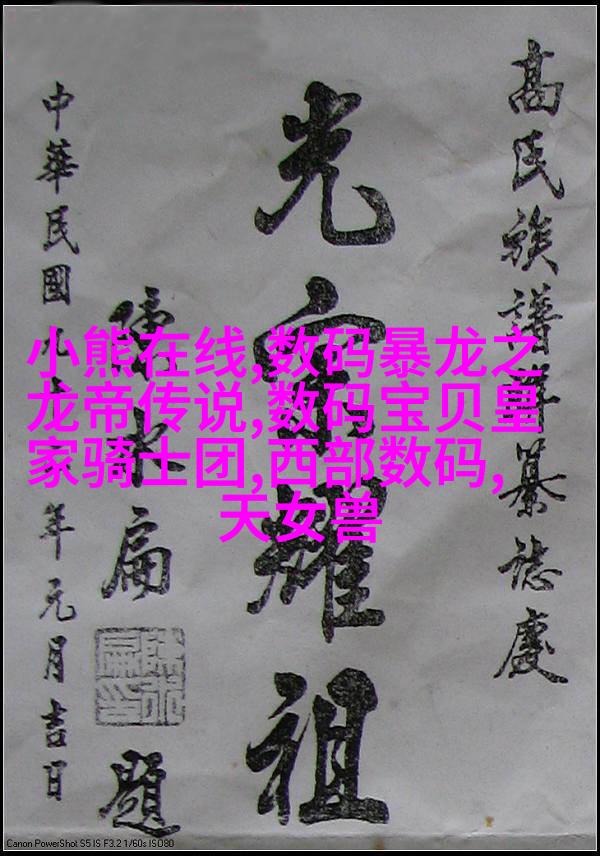 高氏族譜纂誌慶
光宗耀祖
陳水扁
陳水扁印
題
中華民國年元月吉日
小熊在线,数码暴龙之
龙帝传说,数码宝贝皇
家骑士团,西部数码,
天女兽
Canon PowerShot S5 IS F3.2 1/60s ISO80